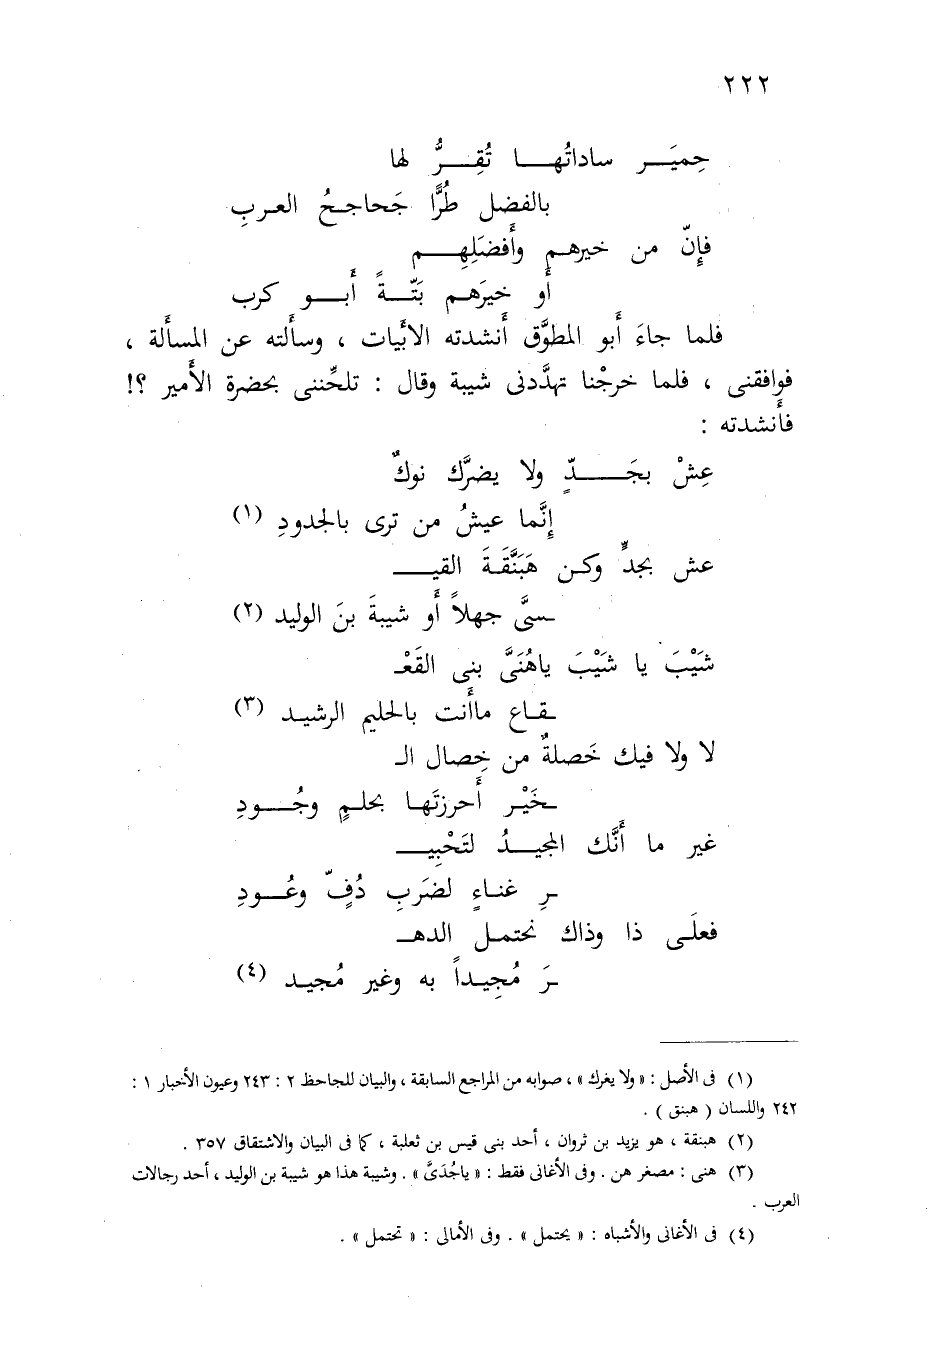 ٢٢٢
حِميَـــر ساداتُهـــا تُقِـــرُّ لها
بالفضل طُرًّا جَحاجحُ العـربِ
فإنّ من خيرهـم وأَفضَلِهِـــم
أَو خيرَهـم بَتّـــةً أَبـــو كرب
فلما جاءَ أَبو المطوَّق أَنشدته الأَبيات ، وسأَلته عن المسأَلة ،
فوافقنى ، فلما خرجْنا تهدَّدنى شيبة وقال : تلحِّننى بحضرة الأَمير ؟!
فأَنشدته :
عِشْ بجَـــــدٍّ ولا يضرَّك نوكٌ
إِنَّما عيشُ من ترى بالجدودِ (١)
عش بجدٍّ وكـن هَبَنَّقَـةَ القيـــ
ـسىَّ جهلاً أَو شيبةَ بنَ الوليد (٢)
شَيْبَ يا شَيْبَ ياهُنَىَّ بنى القَعْـ
ـقـاع ماأَنت بالحليم الرشيـد (٣)
لا ولا فيك خَصلةٌ من خِصال الـ
ـخَيْـر أَحرزتَهـا بحلـمٍ وجُــودِ
غير ما أَنَّك المجيـــدُ لتَحْبِيـــ
ـرِ غنـاءٍ لضَربِ دُفٍّ وعُــودِ
فعلَـى ذا وذاك نحتمـل الدهـ
ـرَ مُجِيـداً به وغير مُجيـد (٤)
(١) فى الأصل : « ولا يغرك » ، صوابه من المراجع السابقة ، والبيان للجاحظ ٢ : ٢٤٣ وعيون الأخبار ١ :
٢٤٢ واللسان ( هبنق ) .
(٢) هبنقة ، هو يزيد بن ثروان ، أحد بنى قيس بن ثعلبة ، كما فى البيان والاشتقاق ٣٥٧ .
(٣) هنى : مصغر هن . وفى الأغانى فقط : « ياجُدَىَّ » . وشيبة هذا هو شيبة بن الوليد ، أحد رجالات
العرب .
(٤) فى الأغانى والأشباه : « يحتمل » . وفى الأمالى : « تحتمل » .